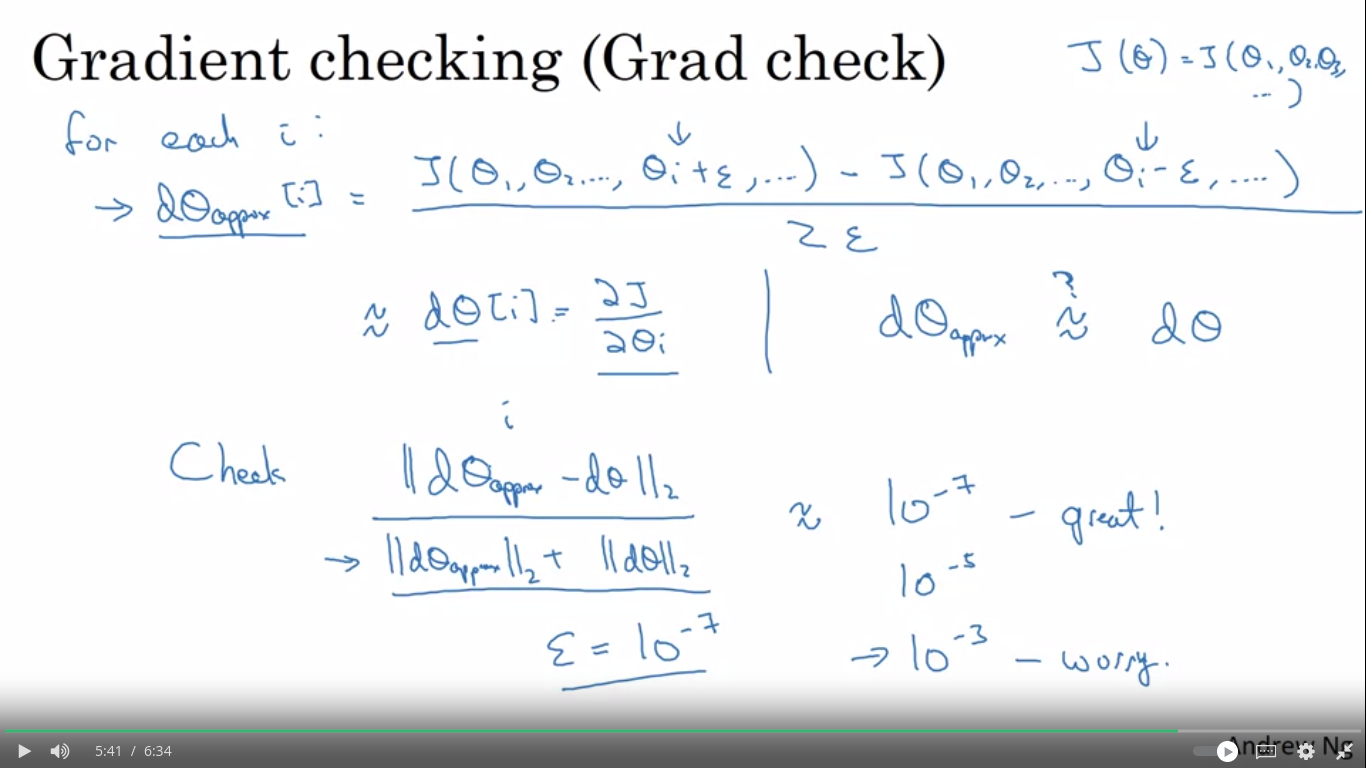 Gradient checking (Grad check)
J(θ) = J(θ₁, θ₂, θ₃, ...)
for each i:
→ dθapprox[i] = J(θ₁, θ₂, ..., θᵢ+ε, ...) - J(θ₁, θ₂, ..., θᵢ-ε, ....)
2ε
≈ dθ[i] = ∂J/∂θᵢ | dθapprox ≈? dθ
i
Check ||dθapprox - dθ||₂
→ ||dθapprox||₂ + ||dθ||₂
≈ 10⁻⁷ - great!
10⁻⁵
ε = 10⁻⁷
→ 10⁻³ - worry.
5:41 / 6:34
Andrew Ng